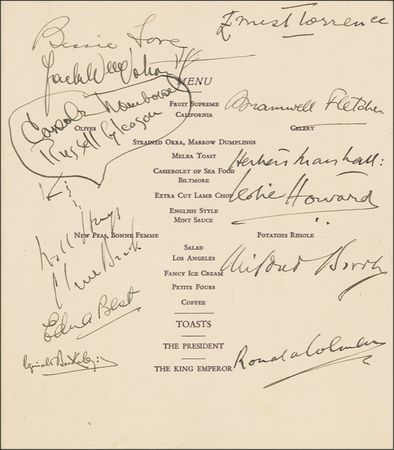 Ernest Torrence
Bessie Love
MENU
FRUIT SUPREME
CALIFORNIA
Bramwell Fletcher
Carole Lombard
Russell Gleason
OLIVES
CELERY
STRAINED OKRA, MARROW DUMPLINGS
MELBA TOAST
Herbert Marshall:
CASSEROLET OF SEA FOOD
BILTMORE
EXTRA CUT LAMB CHOP
Leslie Howard
ENGLISH STYLE
MINT SAUCE
NEW PEAS, BONNE FEMME
POTATOES RISOLE
SALAD
LOS ANGELES
Clive Brook
FANCY ICE CREAM
PETITS FOURS
COFFEE
Edna Best
TOASTS
THE PRESIDENT
Reginald Berkeley
THE KING EMPEROR
Ronald Colman